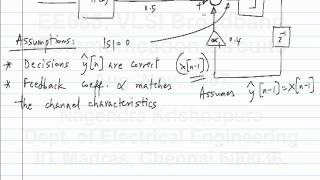 0.5
0.4
z⁻¹
Assumptions: |S|=0
* Decisions ŷ[n] are correct (x[n-1])
* Feedback coeff. α matches the channel characteristics
Assumes ŷ[n-1] = x[n-1]
Nagendra Krishnapura
Dept of Electrical Engineering
IIT Madras, Chennai 600036